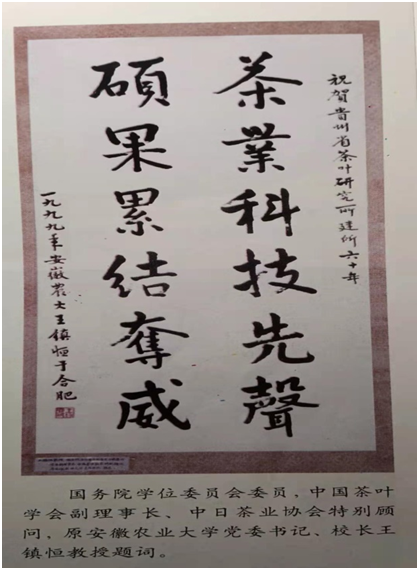 祝賀貴州省茶叶研究所建所六十年
茶業科技先聲
碩果累结奪威
一九九九年安徽農大王鎮恒于合肥
国务院学位委员会委员，中国茶叶
学会副理事长、中日茶业协会特别顾
问，原安徽农业大学党委书记、校长王
镇恒教授题词。